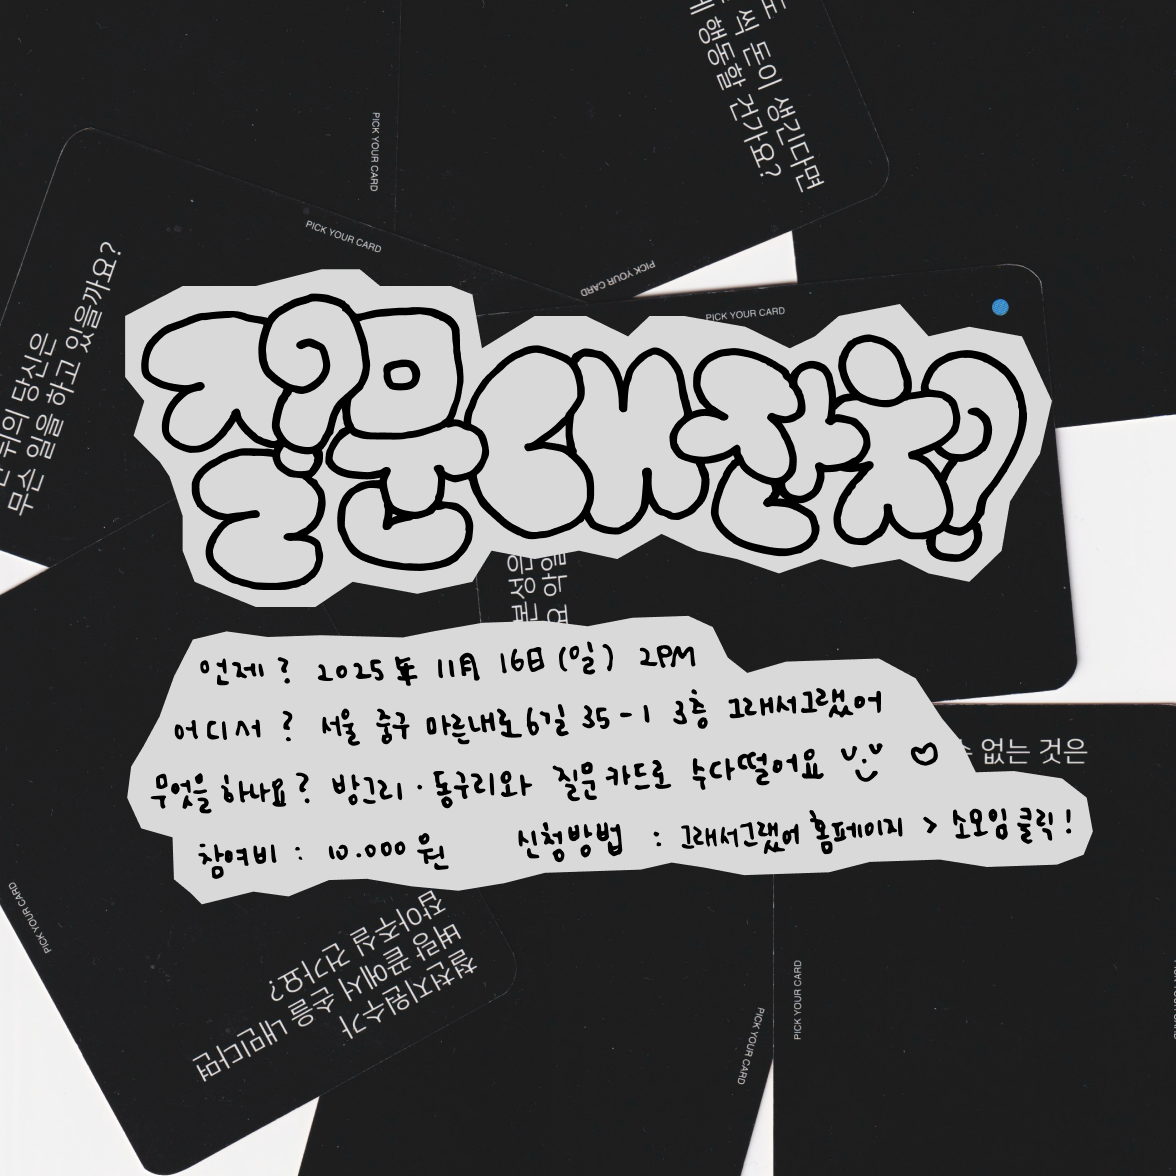 도
썩 돈이 생긴다면
행동할 건가요?
PICK YOUR CARD
PICK YOUR CARD
PICK YOUR CARD
PICK YOUR CARD
뒤의 당신은
무슨 일을 하고 있을까요?
질문대잔치?
언제? 2025年 11月 16日 (일) 2PM
어디서? 서울 중구 마른내로6길 35-1 3층 그래서그랬어
무엇을 하나요? 방그리·동구리와 질문카드로 수다떨어요
수 없는 것은
참여비 : 10.000원 신청방법 : 그래서그랬어 홈페이지 > 소모임 클릭!
PICK YOUR CARD
철천지원수가
벼랑 끝에서 손을 내민다면
잡아주실 건가요?
PICK YOUR CARD
PICK YOUR CARD